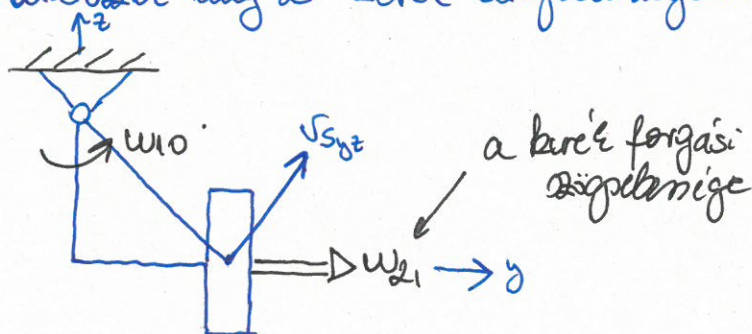 a kerék
z
ω10
vSyz
a kerék forgási
szögsebessége
ω21
y